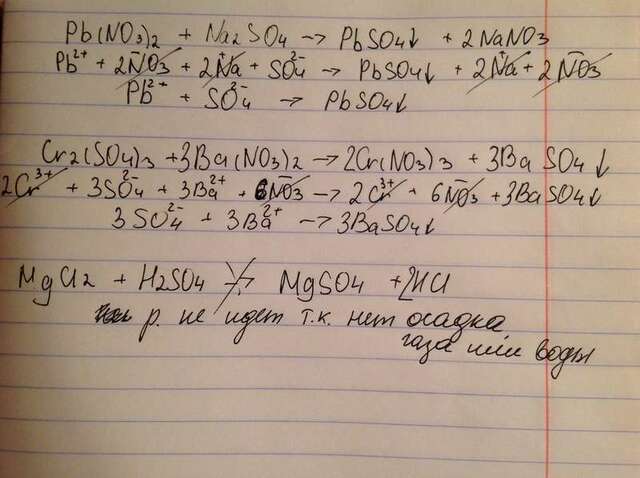 Pb(NO3)2 + Na2SO4 → PbSO4↓ + 2NaNO3
Pb²⁺ + 2NO3⁻ + 2Na⁺ + SO4²⁻ → PbSO4↓ + 2Na⁺ + 2NO3⁻
Pb²⁺ + SO4²⁻ → PbSO4↓
Cr2(SO4)3 + 3Ba(NO3)2 → 2Cr(NO3)3 + 3BaSO4↓
2Cr³⁺ + 3SO4²⁻ + 3Ba²⁺ + 6NO3⁻ → 2Cr³⁺ + 6NO3⁻ + 3BaSO4↓
3SO4²⁻ + 3Ba²⁺ → 3BaSO4↓
MgCl2 + H2SO4 ↛ MgSO4 + 2HCl
р. не идет т.к. нет осадка
газа или воды